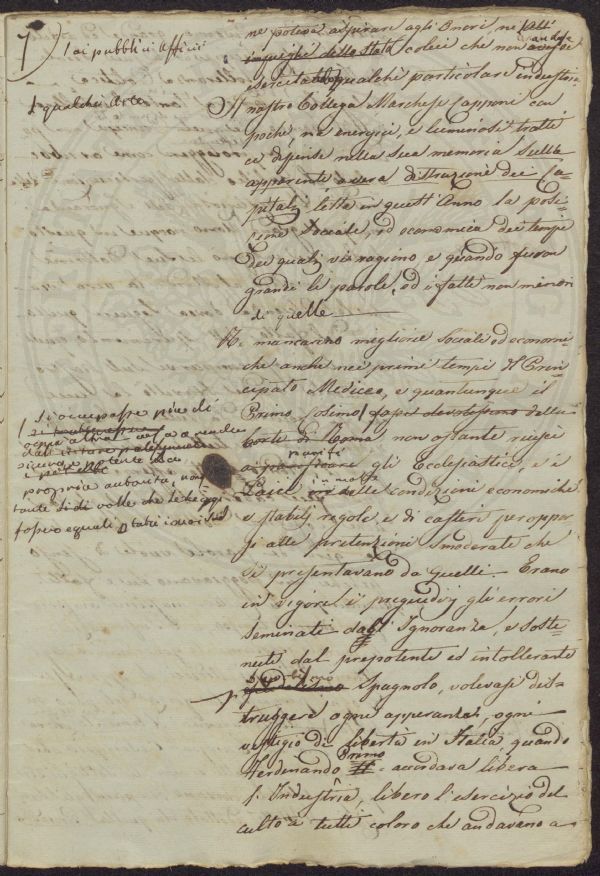 7
/ ai pubblici Uffici
+ qualche arte
ne poteva aspirare agli Onori ne
impieghi dello Stato colui che non
esercitasse qualche particolare industria
Il nostro Collega Marchese Capponi con
poche, ma energiche, e luminose tratte
ce dipinse nella sua memoria sulla
apparente o vera distruzione dei Ca-
pitali, letta in quest'Anno la posi-
zione Sociale, ed economica dei tempi
dei quali vi ragiono, e quando furon
grandi le parole, ed i fatti non minori
di quelle
Ne mancarono migliorie Sociali ed economi
che anche nei primi tempi del Prin
cipato Mediceo, e quantunque il
Primo Cosimo / fosse devotissimo della
Corte di Roma, non ostante riuscì
pareggiare gli Ecclesiastici, e i
Laici in molte delle condizioni economiche
e stabilì regole, e di casi per oppor
si alle pretenzioni smoderate che
si presentavano da quelli. Erano
in vigore i pregiudizj, gli errori
seminati dagl' Ignoranza, e soste-
nuti dal prepotente ed intollerante
Spagnolo, volevasi dis-
truggere ogni apparenza, ogni
vestigio di libertà in Italia, quando
Ferdinando Primo accordava libera
l'Industria, libero l'esercizio del
culto a tutti coloro che andavano a
/ si occupasse più di
ogni altra cosa a rendere
sicura e potente la
propria autorità, non
tante di volle che le leggi
fossero eguali